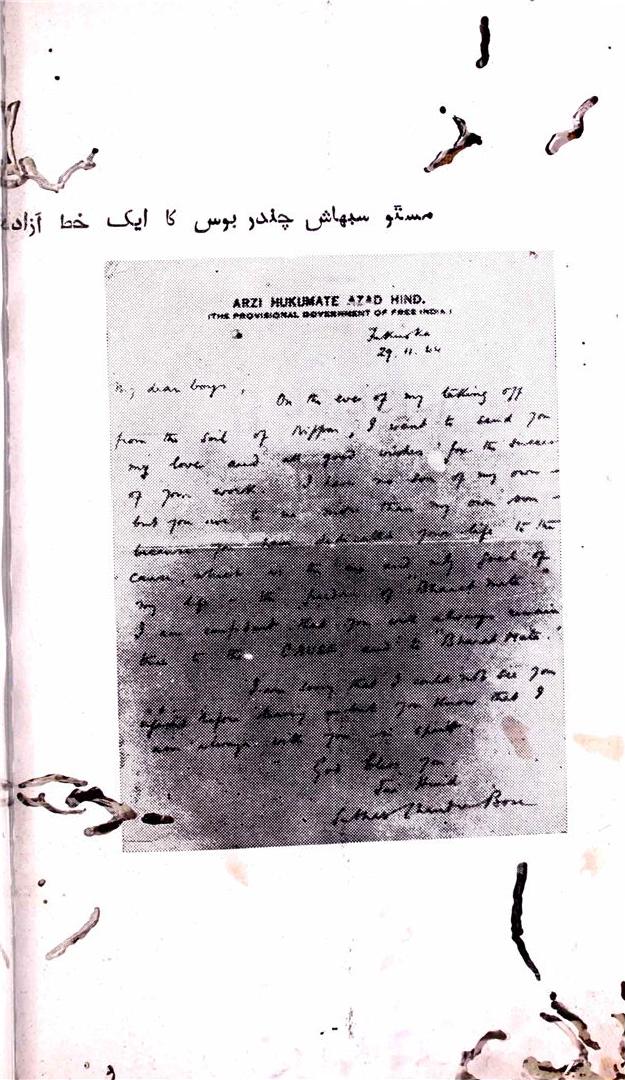 مسٹر سبھاش چندر بوس کا ایک خط آزاد
ARZI HUKUMATE AZAD HIND.
(THE PROVISIONAL GOVERNMENT OF FREE INDIA)
29. 11. 44
My dear boys,
On the eve of my taking off
from the soil of Nippon, I want to send you
my love and all good wishes for the success
of your work. I have no son of my own –
but you are to me more than my own son –
because you have dedicated your life to the
cause, which is the one and only goal of
my life – the freedom of "Bharat Mata".
I am confident that you will always remain
true to the CAUSE and to "Bharat Mata."
I am sorry that I could not see you
before leaving but you know that I
am always with you in spirit.
God bless you
Jai Hind
Subhas Chandra Bose